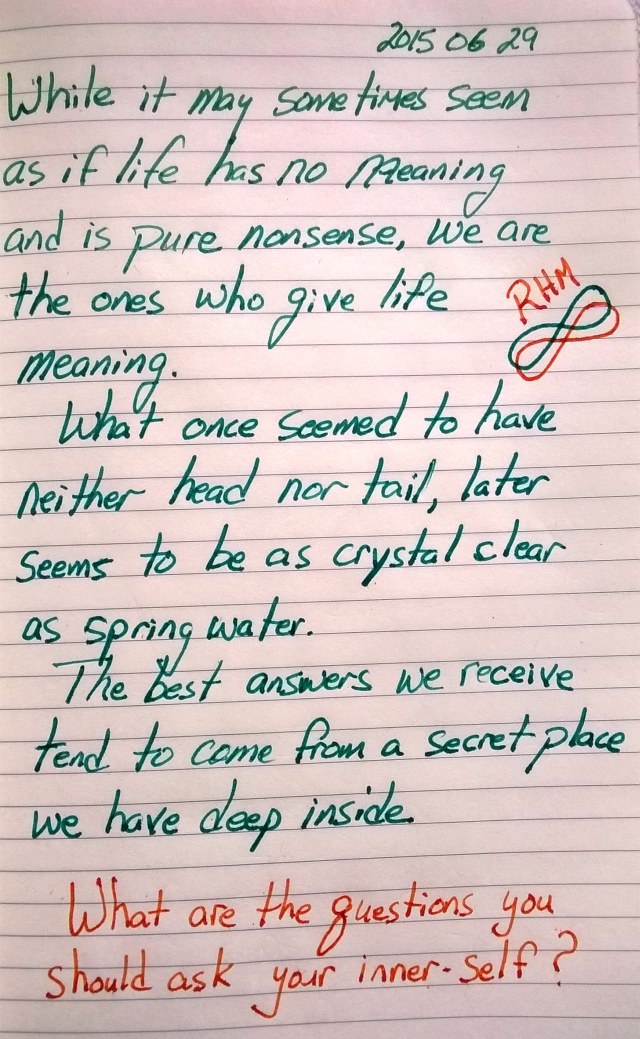 2015 06 29
While it may sometimes seem
as if life has no meaning
and is pure nonsense, we are
the ones who give life
RHM
meaning.
What once seemed to have
neither head nor tail, later
seems to be as crystal clear
as spring water.
The best answers we receive
tend to come from a secret place
we have deep inside.
What are the questions you
should ask your inner-self?